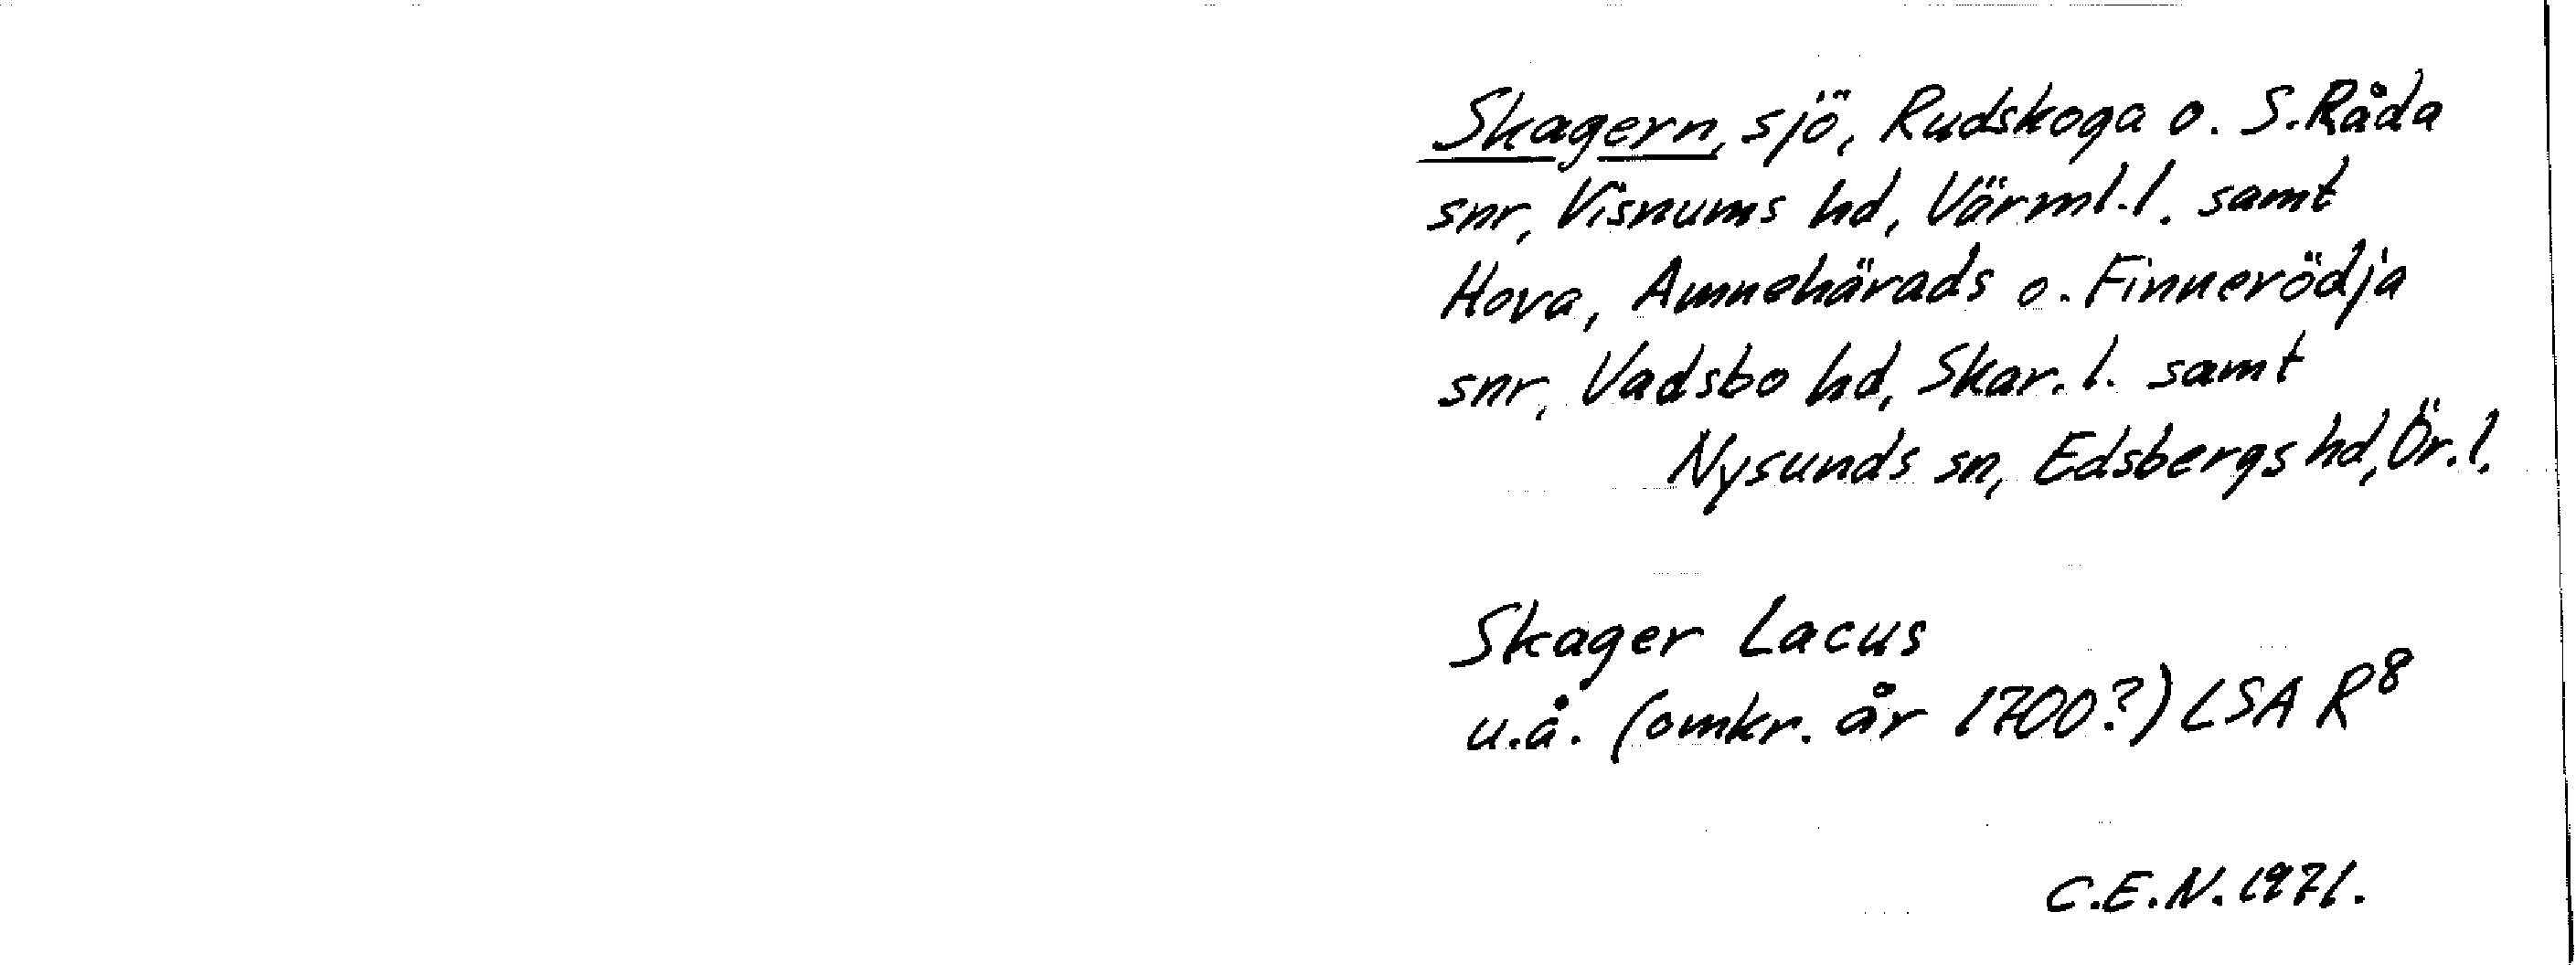 Skagern, sjö, Rudskoga o. S. Råda
snr, Visnums hd, Värml. l. samt
Hova, Amnehärads o. Finnerödja
snr, Vadsbo hd, Skar. l. samt
Nysunds sn, Edsbergs hd, Ör. l.
Skager Lacus
u.å. (omkr. år 1700?) LSA R⁸
C.E.N. 1971.